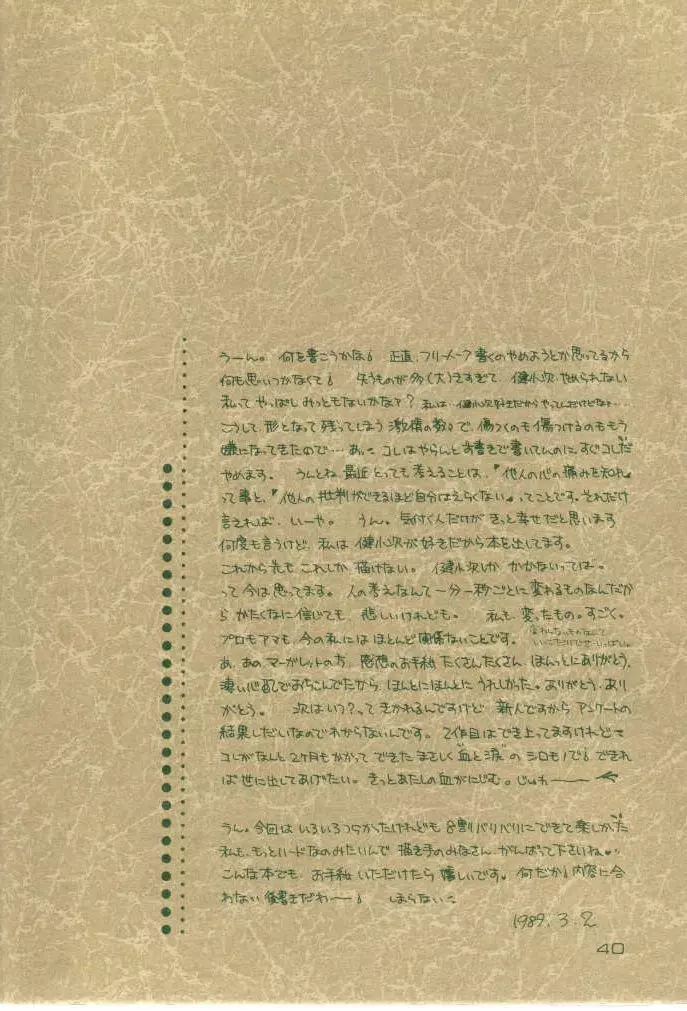 うーん。 何を書こうかな。 正直、フリーメーク書くのやめようとか思ってるから
何も思いつかなくて。 失うものが多(大)きすぎて 健小次やめられない
私って やっぱしみっともないかな？？ 私は…健小次好きだからやってんだけどなァ…
こうして 形となって 残ってしまう 激情の数々で、傷つくのも傷つけるのももう
嫌になってきたので… コレはやらんとお書きで書いてんのに、すぐコレだ
やめます。 うんとね 最近 とっても考えることは、『他人の心の痛みを知れ』
って事と、『他人の批判ができるほど自分はえらくない』ってことです。それだけ
言えれば いーや。 うん。気付く人だけが きっと幸せだと思います
何度も言うけど、私は 健小次が好きだから本を出してます。
これから先も これしか 描けない。 健小次しか かかないってば。
って今は思ってます。 人の考えなんて 一分一秒ごとに変わるものなんだか
ら かたくなに信じても 悲しいけれども。 私も 変ったもの。すごく。
プロもアマも、今の私には ほとんど関係ないことです。
あ、あの マーガレットの方 感想のお手紙 たくさんたくさん ほんっとにありがとう。
凄い心配でおちこんでたから ほんとにほんとに うれしかった。ありがとう、あり
がとう。 次はいつ？って きかれるんですけど 新人ですから アンケートの
結果しだいなのでわからないんです。2作目はでき上ってますけれど
コレがなんと2ヶ月もかかって できた まさしく“血と涙”の シロモノで。できれ
ば 世に出してあげたい。きっとあたしの血がにじむ。じゅわーーー
うん。今回は いろいろつらかったけれども 8割バリバリにできて楽しかった
私も もっとハードなのみたいんで 描き手のみなさん がんばって下さいね
こんな本でも お手紙いただけたら 嬉しいです。何だか 内容に合
わない 後書きだわー しまらない
1989. 3. 2
40